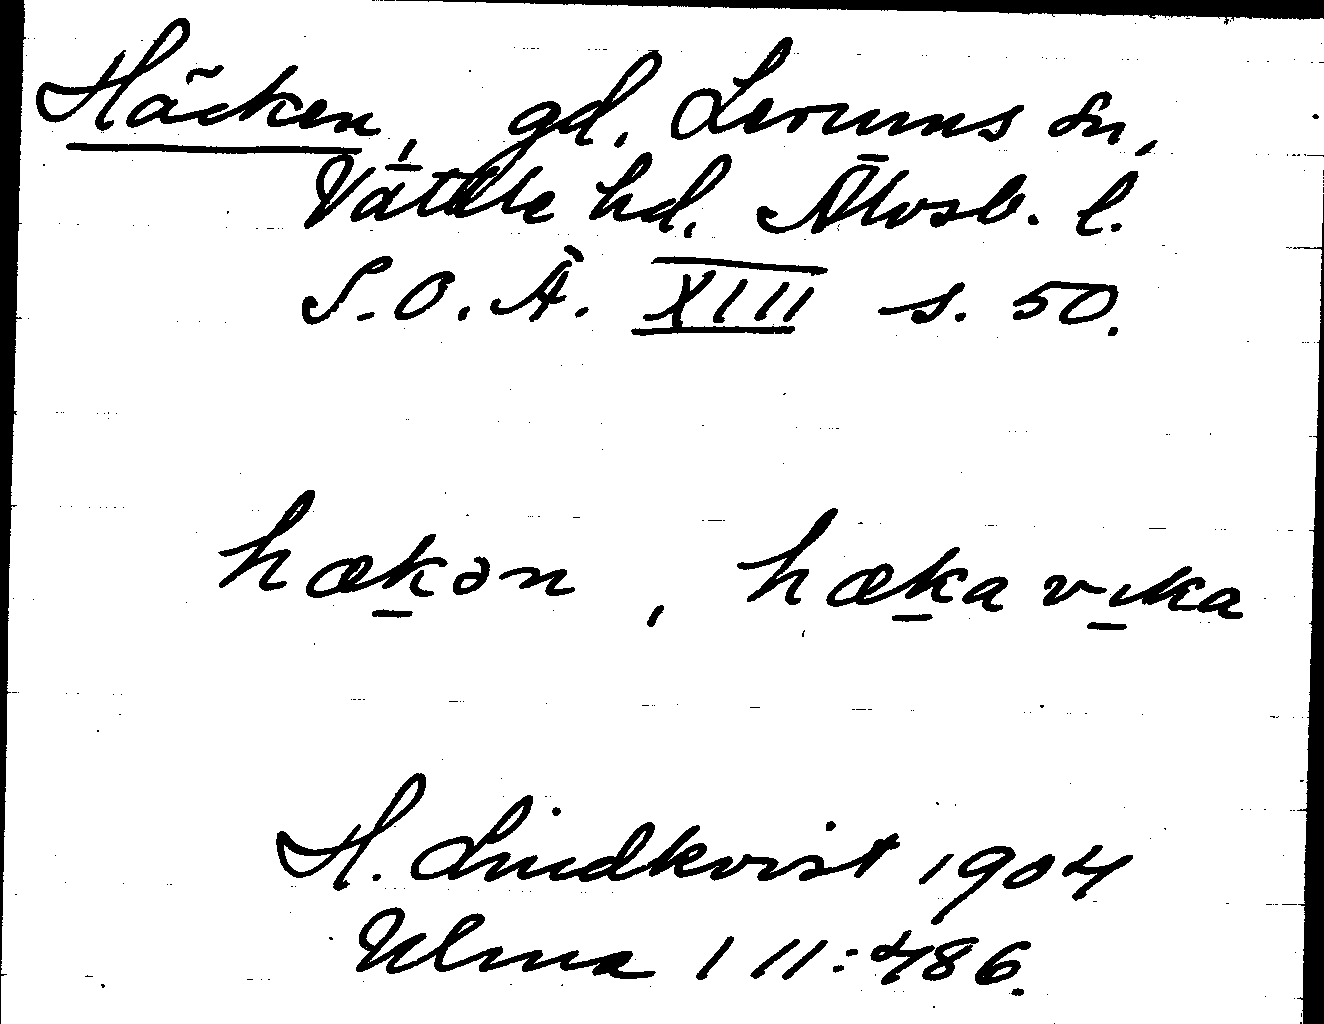 Häcken, gd. Lerums sn,
Vättle hd. Älvsb. l.
S.O.Ä. XIII s. 50.
hækən, hækavika
H. Lindkvist 1904
Ulma 111:486.